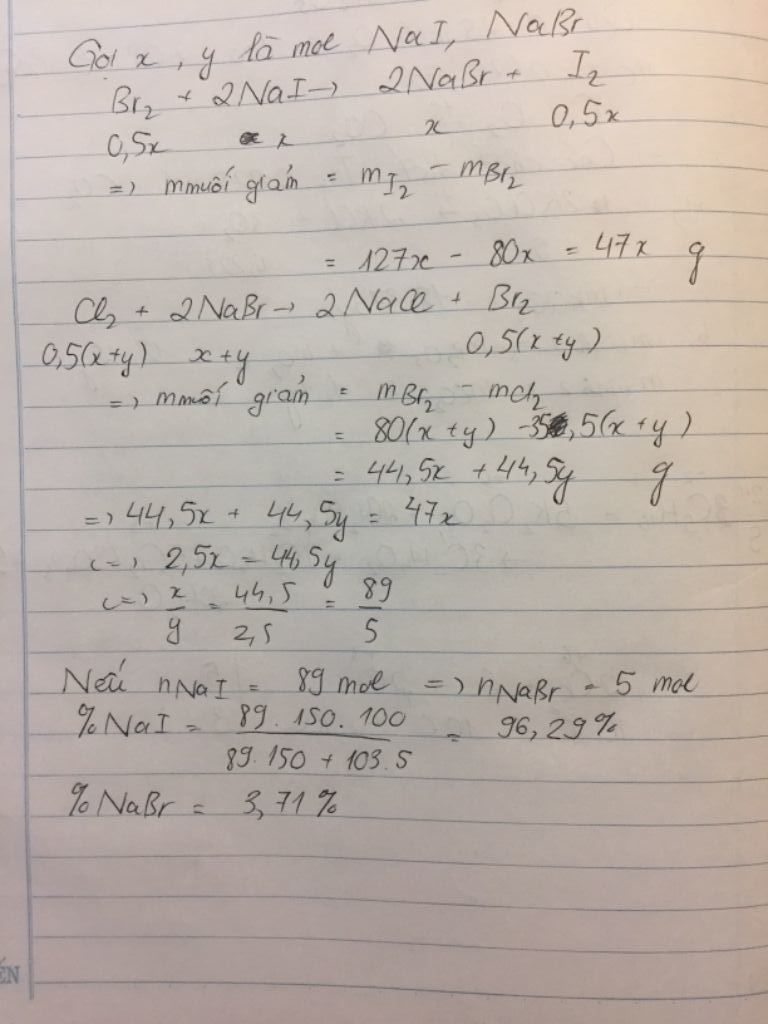 Gọi x, y là mol NaI, NaBr
Br₂ + 2NaI → 2NaBr + I₂
0,5x x x 0,5x
=> mmuối giảm = mI₂ - mBr₂
= 127x - 80x = 47x g
Cl₂ + 2NaBr → 2NaCl + Br₂
0,5(x+y) x+y 0,5(x+y)
=> mmuối giảm = mBr₂ - mCl₂
= 80(x+y) - 35,5(x+y)
= 44,5x + 44,5y g
=> 44,5x + 44,5y = 47x
<=> 2,5x = 44,5y
<=> x/y = 44,5/2,5 = 89/5
Nếu nNaI = 89 mol => nNaBr = 5 mol
%NaI = 89.150.100/89.150 + 103.5 = 96,29%
%NaBr = 3,71%
ẾN